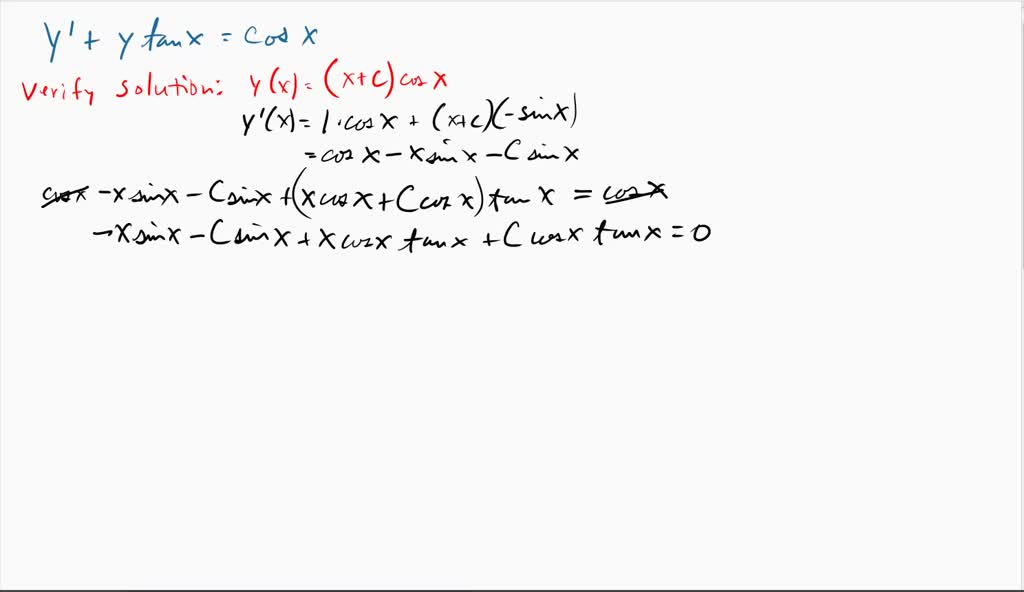 y' + y tan x = cos x
Verify solution: y(x) = (x+c) cos x
y'(x) = 1·cos x + (x+c)(-sin x)
= cos x - x sin x - C sin x
cos x - x sin x - C sin x + (x cos x + C cos x) tan x = cos x
-x sin x - C sin x + x cos x tan x + C cos x tan x = 0